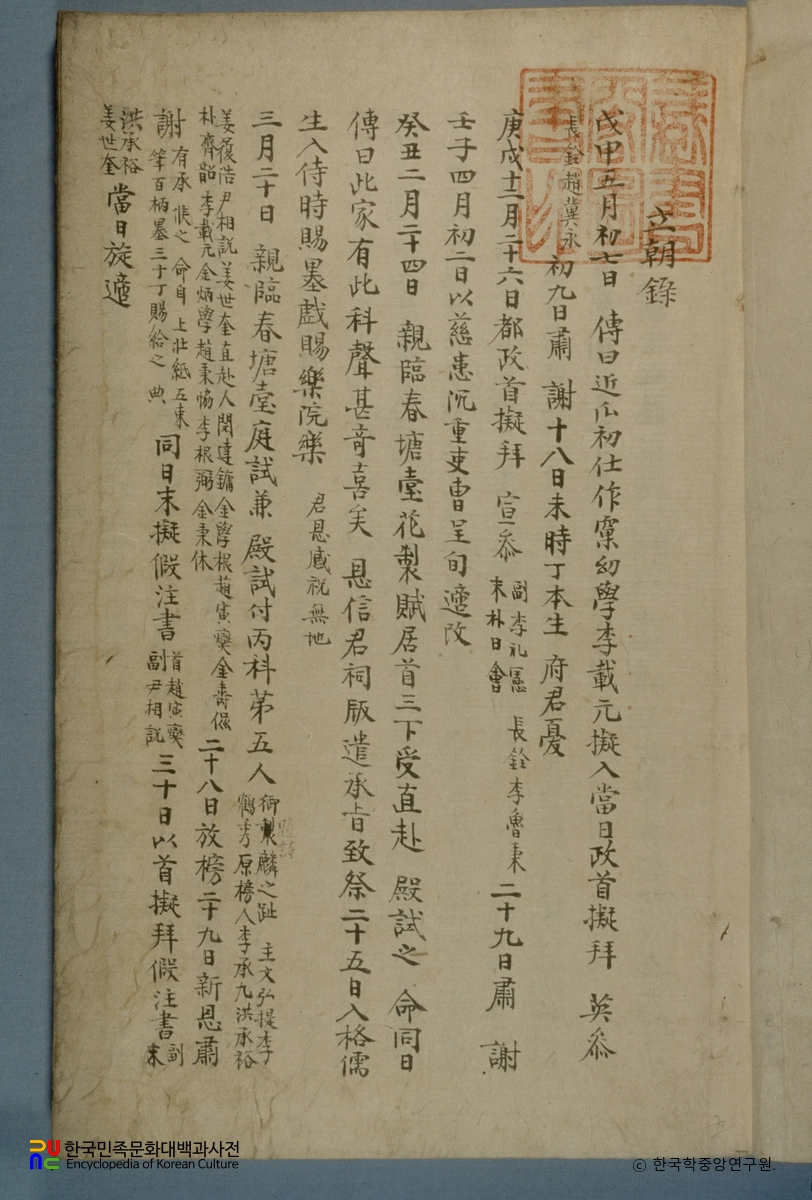 立朝錄
戊申五月初七日 傳曰近必初仕作窠幼學李載元擬入當日政首擬拜 英參
長銓趙冀永 初九日肅 謝十八日未時丁本生 府君憂
庚戌十二月二十六日都政首擬拜 宣參 副李礼愚 末朴日會 長銓李魯秉 二十九日肅 謝
壬子四月初二日以慈患沉重吏曹呈旬遞改
癸丑二月二十四日 親臨春塘臺花製賦居首三下受直赴 殿試之 命同日
傳曰此家有此科聲甚奇喜矣 恩信君祠版遣承旨致祭二十五日入格儒
生入侍時賜墨戲賜樂院樂 君恩感祝無地
三月二十日 親臨春塘臺庭試兼 殿試付丙科第五人 御製麟之趾 主文弘提李
鶴秀原榜人李承九洪承裕
姜復浩尹相說姜世奎直赴人閔達鏞金學根趙寅燮金壽
朴齊韶李載元金炳學趙秉協李根弼金秉休 二十八日放榜二十九日新恩肅
謝 有承 之 命自 上壯紙五束
筆百柄墨三十丁賜給之典 同日末擬假注書 首趙寅燮 副尹相說 三十日以首擬拜假注書 副
末
洪承裕
姜世奎 當日旋遞
한국민족문화대백과사전
Encyclopedia of Korean Culture
ⓒ 한국학중앙연구원.